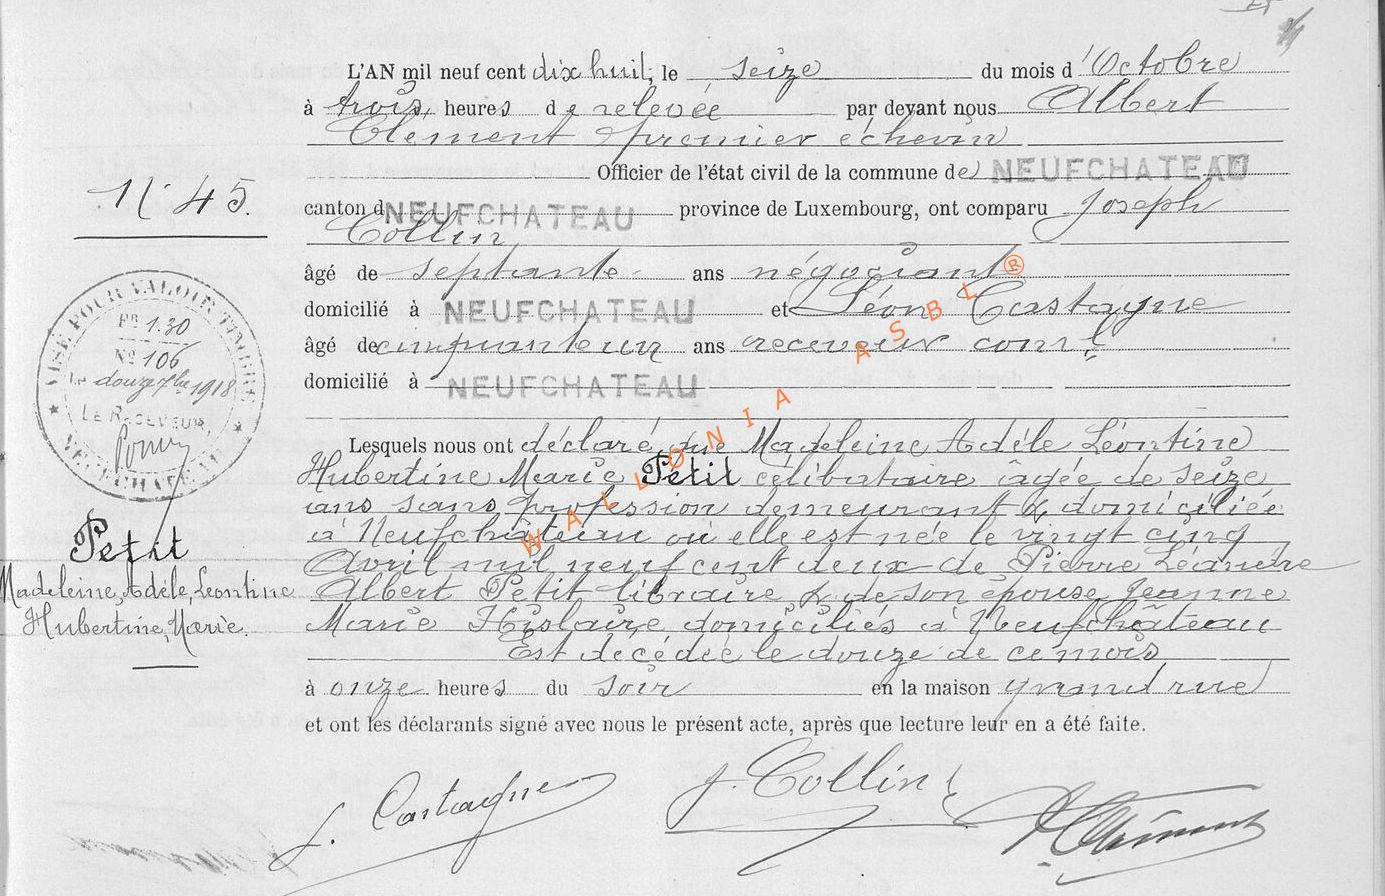 L'AN mil neuf cent dix huit, le seize du mois d'Octobre
à trois heures de relevée par devant nous Albert
Clement premier échevin
Officier de l'état civil de la commune de NEUFCHATEAU
N° 45.
canton d NEUFCHATEAU province de Luxembourg, ont comparu Joseph
Collin
âgé de septante ans négociant
domicilié à NEUFCHATEAU et Léon Castagne
âgé de cinquante un ans receveur coml
domicilié à NEUFCHATEAU
VISÉ POUR VALOIR TIMBRE
FR 1.30
No 106
Le douze 7bre 1918
LE RECEVEUR,
NEUFCHATEAU
Lesquels nous ont déclaré que Madeleine Adèle Léontine
Hubertine Marie Petit célibataire âgée de seize
ans sans profession demeurant & domiciliée
à Neufchâteau où elle est née le vingt cinq
Avril mil neuf cent deux de Pierre Léandre
Albert Petit libraire & de son épouse Jeanne
Marie Hislaire domiciliés à Neufchâteau
Est décédée le douze de ce mois
à onze heures du soir en la maison grand rue
et ont les déclarants signé avec nous le présent acte, après que lecture leur en a été faite.
Petit
Madeleine, Adèle, Léontine
Hubertine, Marie.
L. Castagne
J. Collin
A Clément
WALLONIA ASBL ®